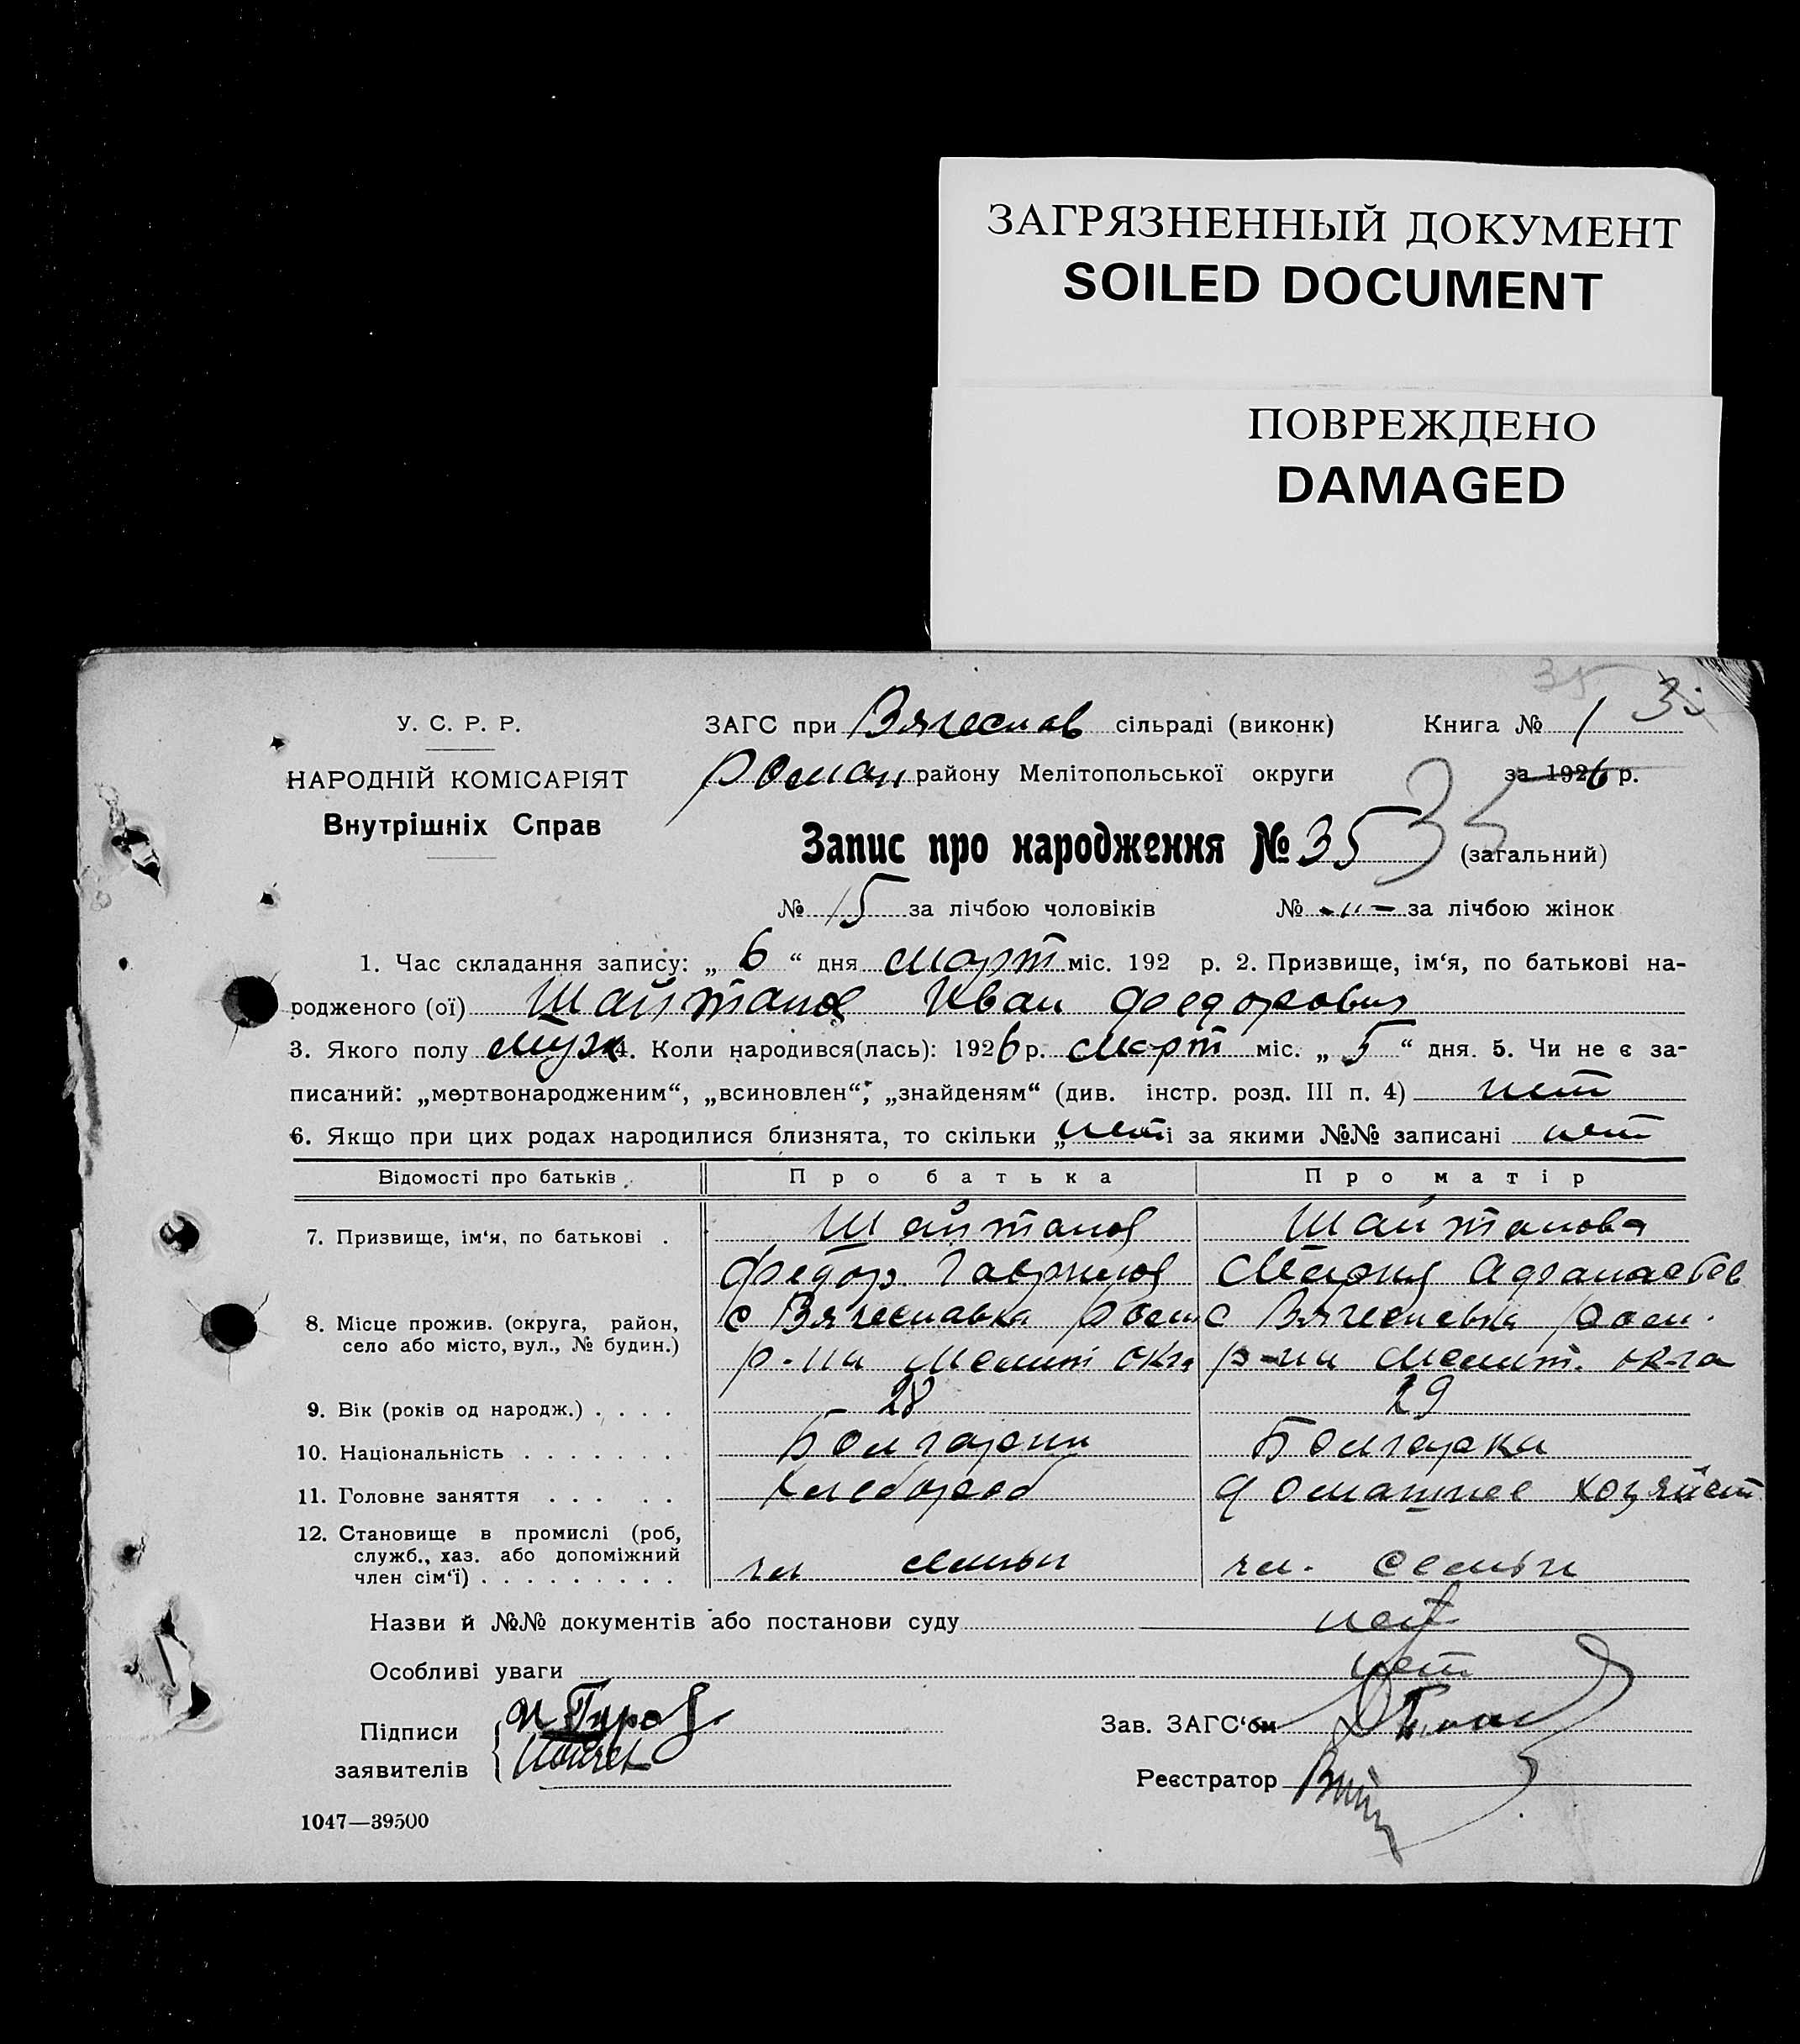 ЗАГРЯЗНЕННЫЙ ДОКУМЕНТ
SOILED DOCUMENT
ПОВРЕЖДЕНО
DAMAGED
35
У. С. Р. Р. ЗАГС при Вячеслав сільраді (виконк) Книга № 1
НАРОДНІЙ КОМІСАРІЯТ Роман району Мелітопольської округи за 1926 р.
Внутрішніх Справ
Запис про народження № 35 35 (загальний)
№ 15 за лічбою чоловіків № -"- за лічбою жінок
1. Час складання запису: „ 6 “ дня март міс. 192 р. 2. Призвище, ім‘я, по батькові на-
родженого (ої) Шайтанов Иван Феодорович
3. Якого полу муж 4. Коли народився(лась): 1926 р. март міс. „ 5 “ дня. 5. Чи не є за-
писаний: „мертвонародженим“, „всиновлен“, „знайденям“ (див. інстр. розд. III п. 4) нет
6. Якщо при цих родах народилися близнята, то скільки „ нет і за якими №№ записані нет
Відомості про батьків Про батька Про матір
7. Призвище, ім‘я, по батькові . Шайтанов Шайтанова
Федор Гаврилов Мария Афанасьев
8. Місце прожив. (округа, район, с Вячеславка Ром с Вячеславка Ром.
село або місто, вул., № будин.) р-на Мелит окг р-на Мелит. ок-га
9. Вік (років од народж.) . . . . 28 29
10. Національність . . . . . . . Болгарин Болгарка
11. Головне заняття . . . . . Хлебороб домашнее хозяйст
12. Становище в промислі (роб,
служб., хаз. або допоміжний
член сім‘ї) . . . . . . . . . чл семьи чл. семьи
Назви й №№ документів або постанови суду нет
Особливі уваги нет
Підписи Зав. ЗАГС‘ом
заявителів Реєстратор
1047—39500